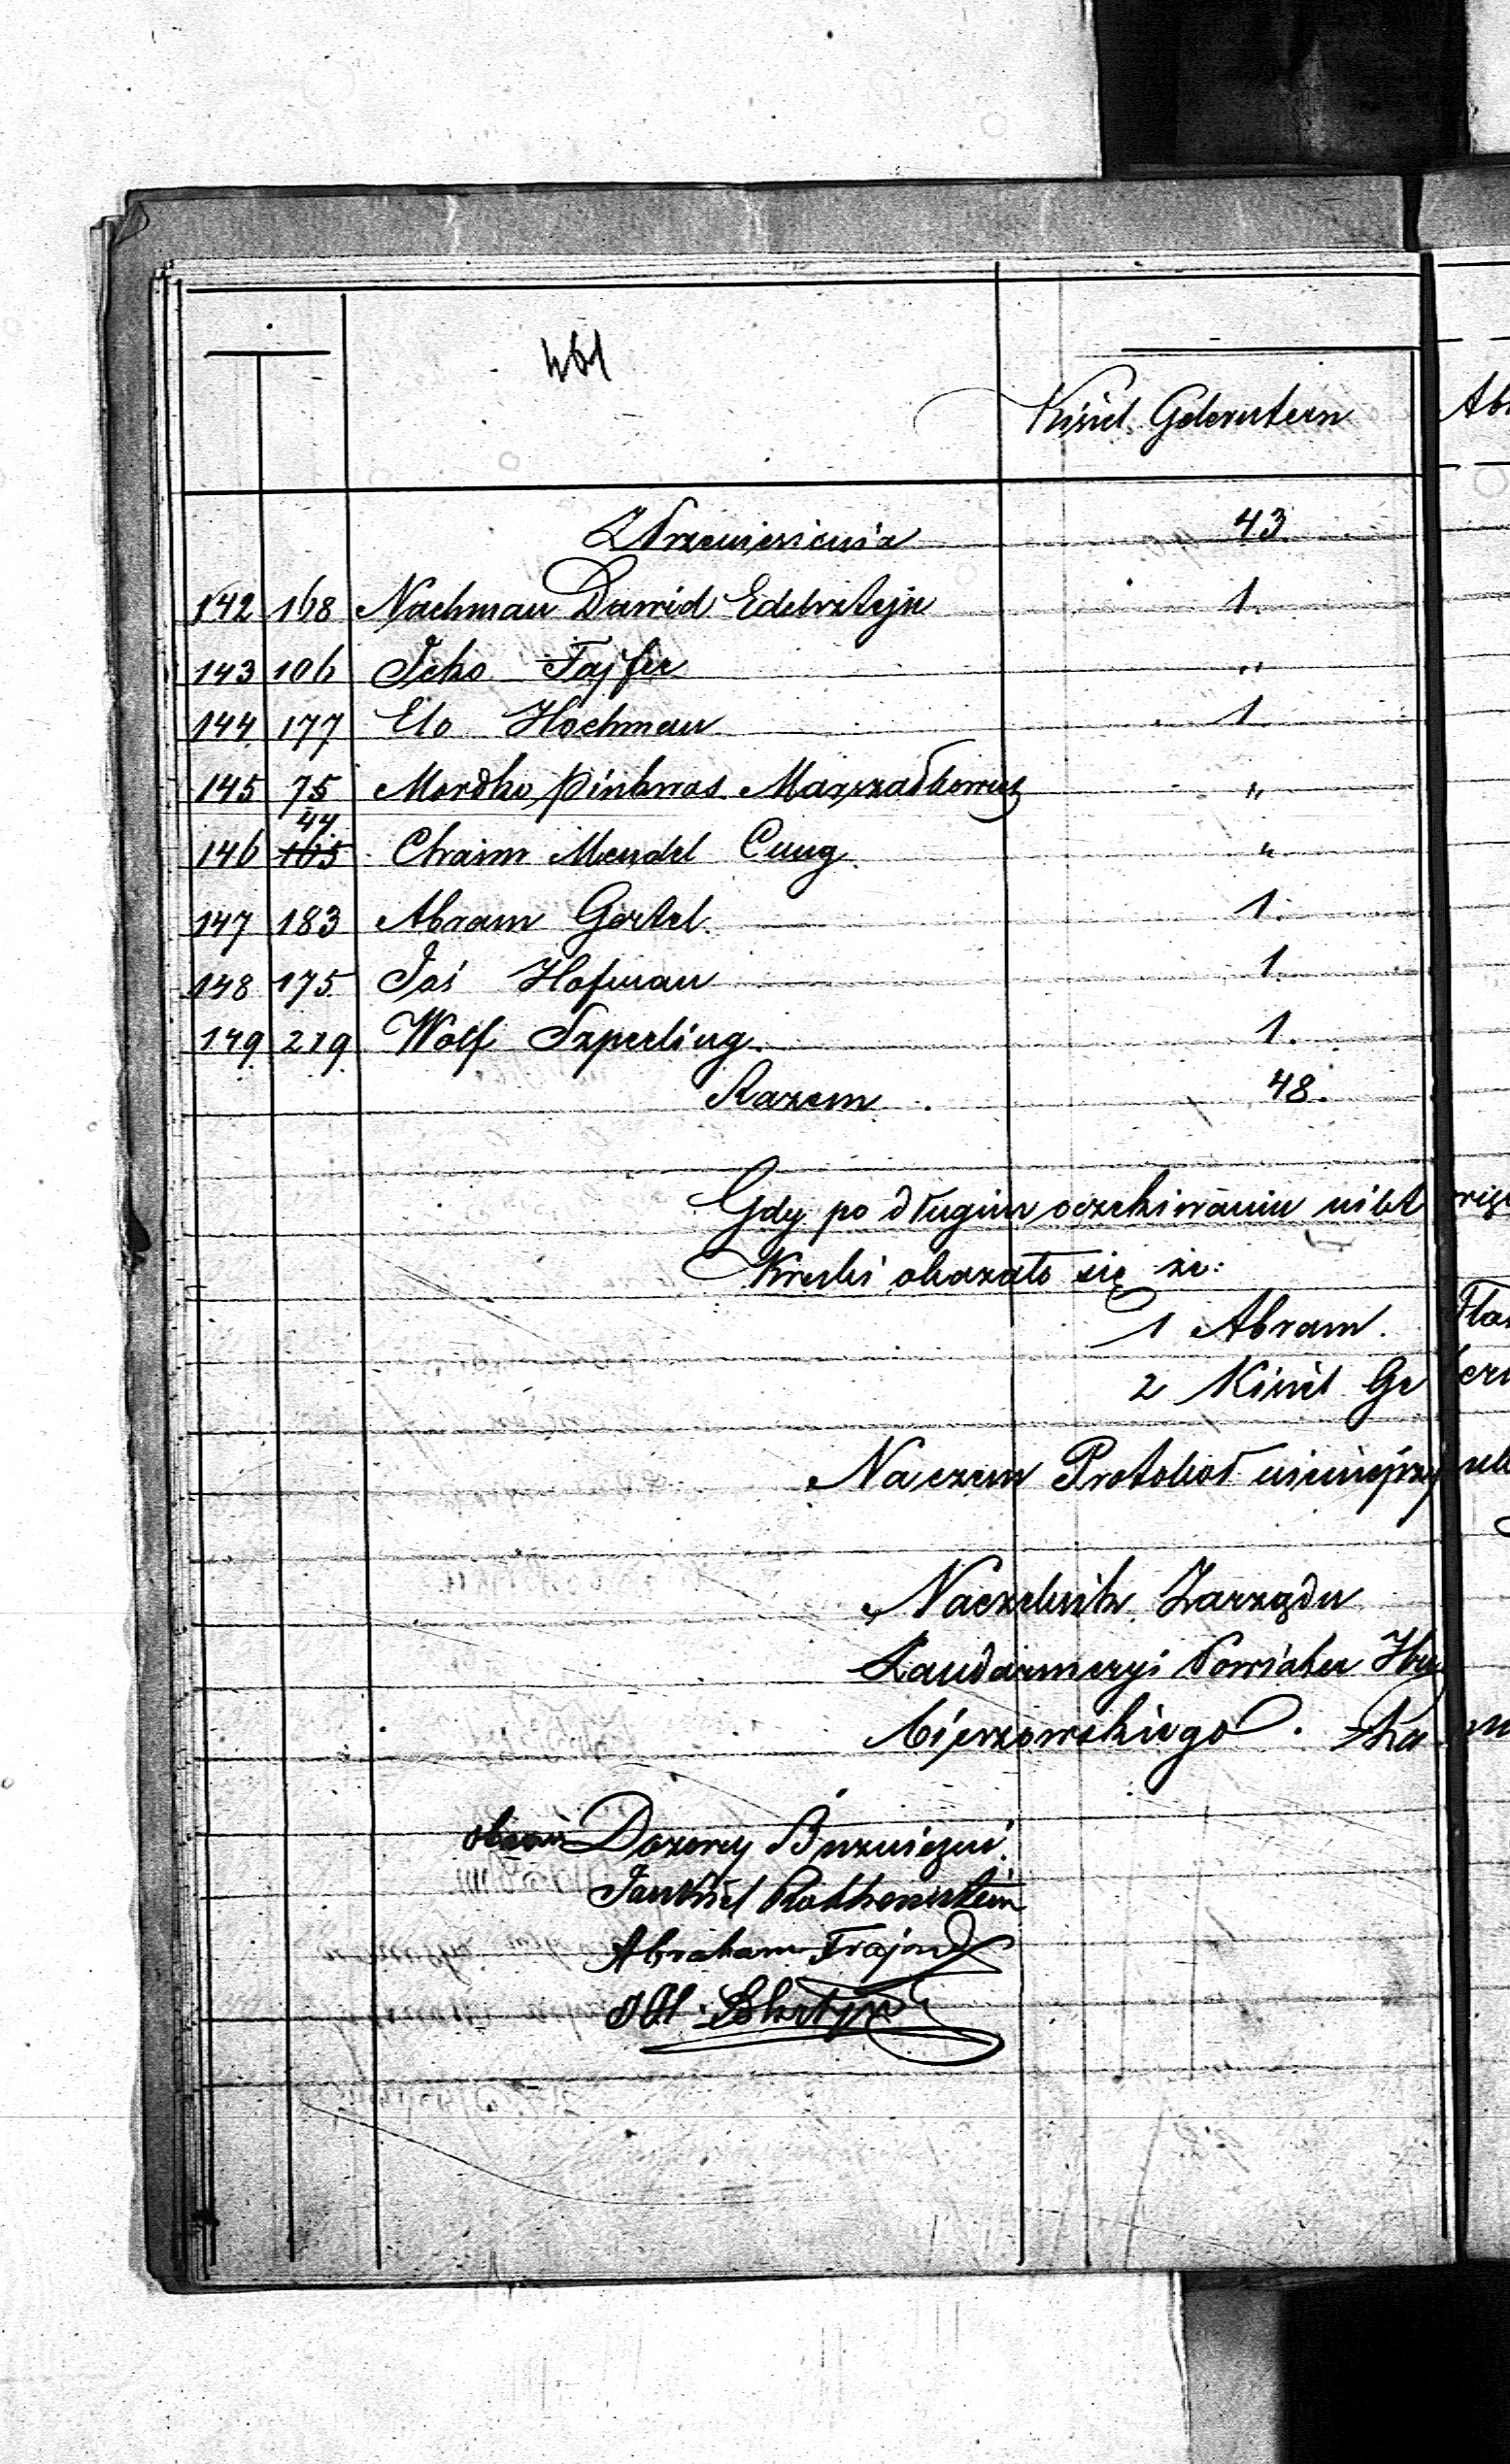 461
Kisiel Gelersztern Ab
Z Przeniesienia 43
142 168 Nachman Dawid Edelsztejn 1.
143 106 Icko Fajfer "
144 177 Elo Hochman 1
145 75 Mordka Pinkwas Marszadkowicz "
146 44 165 Chaim Mendel Cung "
147 183 Abram Gertel 1.
148 175 Joś Hofman 1.
149 219 Wolf Szperling 1.
Razem 48.
Gdy po długim oczekiwaniu nikt więc
Kreski okazało się że:
1 Abram. Fla
2 Kisiel Ge
Na czem Protokoł niniejszy
Naczelnik Zarządu
Żandarmeryi Powiatu
Dozory Bużniczni.
Jankiel Rothensztein
Abraham Frajnd